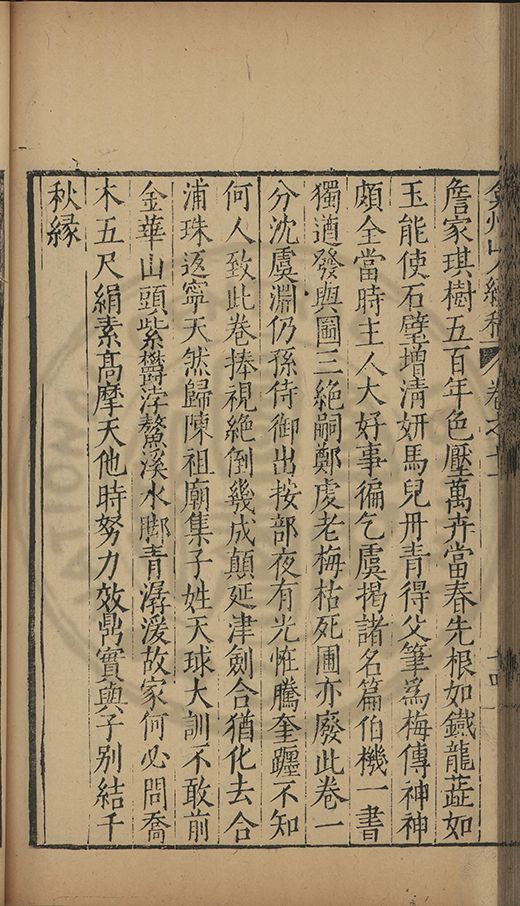 弇州山人續稿 卷之十一 十四
詹家琪樹五百年色壓萬卉當春先根如鐵龍蕋如
玉能使石壁增淸妍馬兒丹青得父筆爲梅傳神神
頗全當時主人大好事徧乞虞揭諸名篇伯機一書
獨遒發與圖三絶嗣鄭虔老梅枯死圃亦廢此卷一
分沈虞淵仍孫侍御出按部夜有光怪騰奎躔不知
何人致此卷捧視絶倒幾成顛延津劍合猶化去合
浦珠返寧天然歸陳祖廟集子姓天球大訓不敢前
金華山頭紫欝浡鰲溪水脚青潺湲故家何必問喬
木五尺絹素髙摩天他時努力效鼎實與子别結千
秋縁